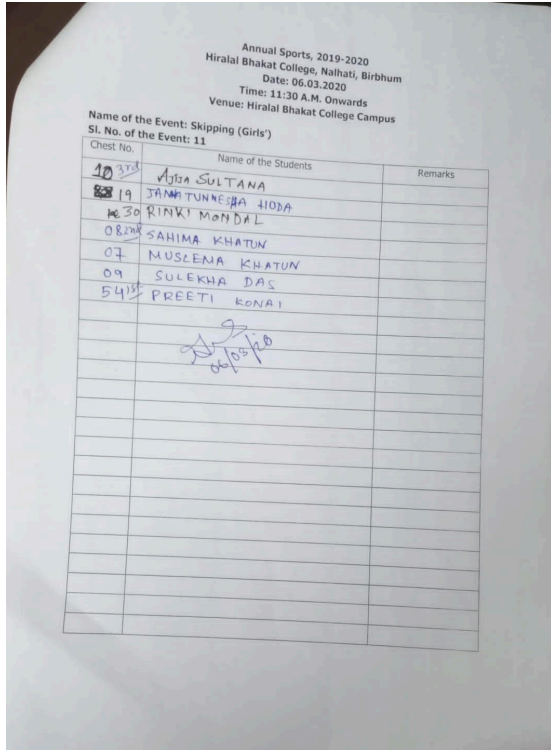 Annual Sports, 2019-2020
Hiralal Bhakat College, Nalhati, Birbhum
Date: 06.03.2020
Time: 11:30 A.M. Onwards
Venue: Hiralal Bhakat College Campus
Name of the Event: Skipping (Girls')
Sl. No. of the Event: 11
Chest No. Name of the Students Remarks
10 3rd AJIJA SULTANA
19 JANNATUNNESHA HODA
30 RINKI MONDAL
08 2nd SAHIMA KHATUN
07 MUSLEMA KHATUN
09 SULEKHA DAS
54 1st PREETI KONAI
06/03/20